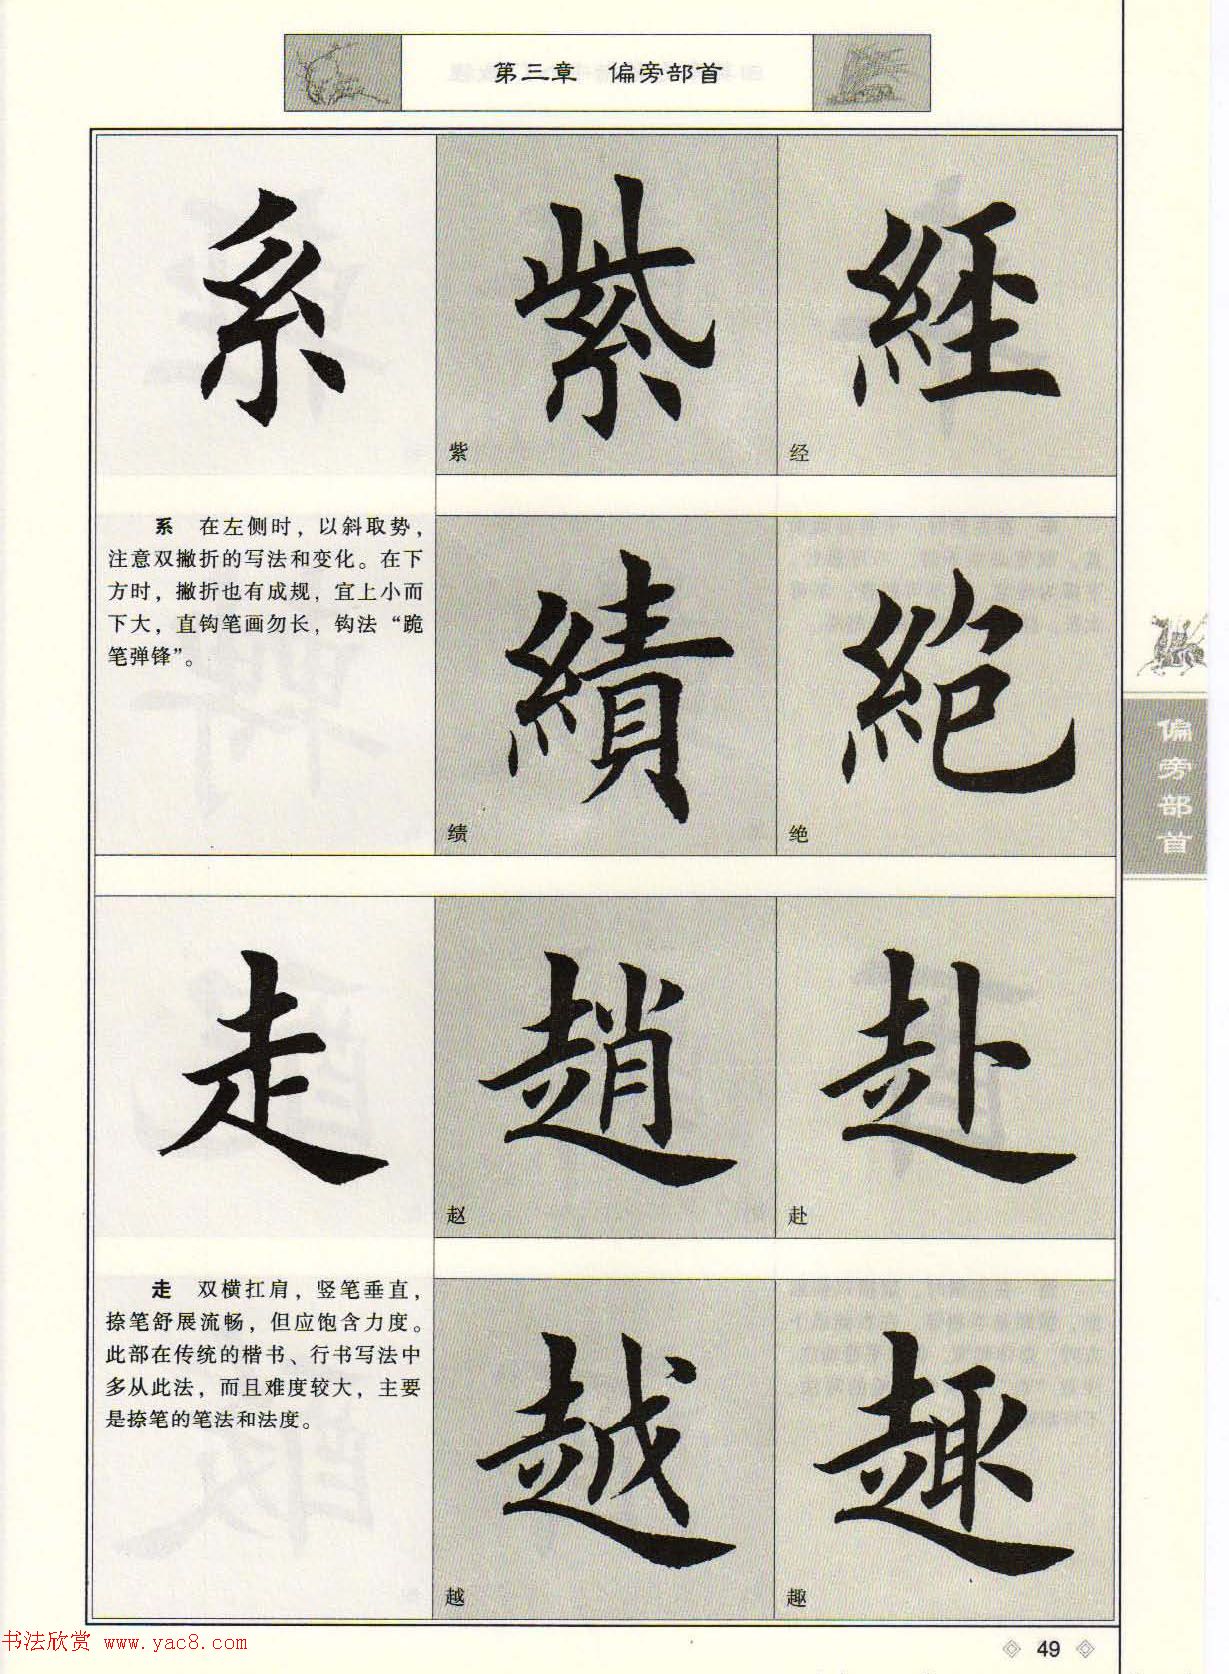 第三章 偏旁部首
系
紫
紫
經
经
系 在左侧时，以斜取势，
注意双撇折的写法和变化。在下
方时，撇折也有成规，宜上小而
下大，直钩笔画勿长，钩法“跪
笔弹锋”。
績
绩
絕
绝
偏旁部首
走
趙
赵
赴
赴
走 双横扛肩，竖笔垂直，
捺笔舒展流畅，但应饱含力度。
此部在传统的楷书、行书写法中
多从此法，而且难度较大，主要
是捺笔的笔法和法度。
越
越
趣
趣
书法欣赏 www.yac8.com
49